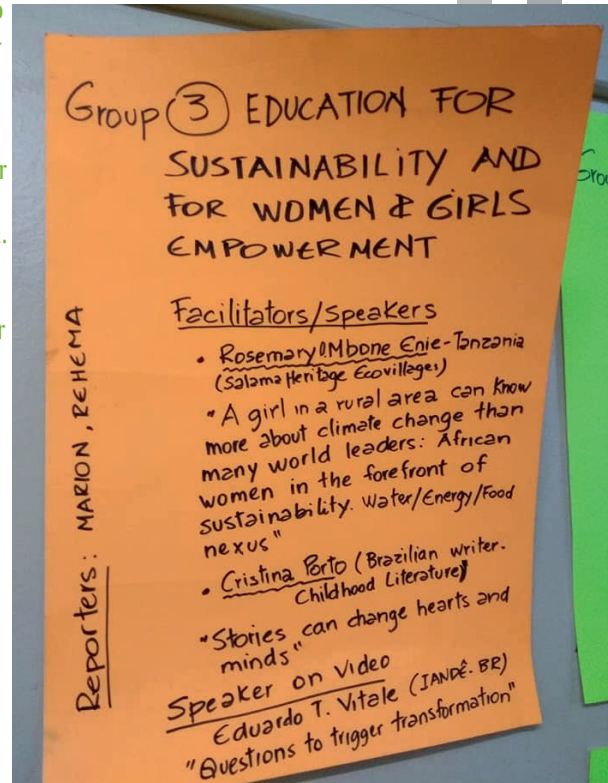 Group 3 EDUCATION FOR
SUSTAINABILITY AND
FOR WOMEN & GIRLS
EMPOWERMENT
Facilitators/speakers
• Rosemary Mbone Enie - Tanzania
(Salama Heritage Ecovillages)
"A girl in a rural area can know
more about climate change than
many world leaders: African
women in the forefront of
sustainability. Water/Energy/Food
nexus"
• Cristina Porto (Brazilian writer.
Childhood Literature)
"Stories can change hearts and
minds"
Speaker on Video
Eduardo T. Vitale (IANDÊ-BR)
"Questions to trigger transformation"
Reporters: MARION, REHEMA